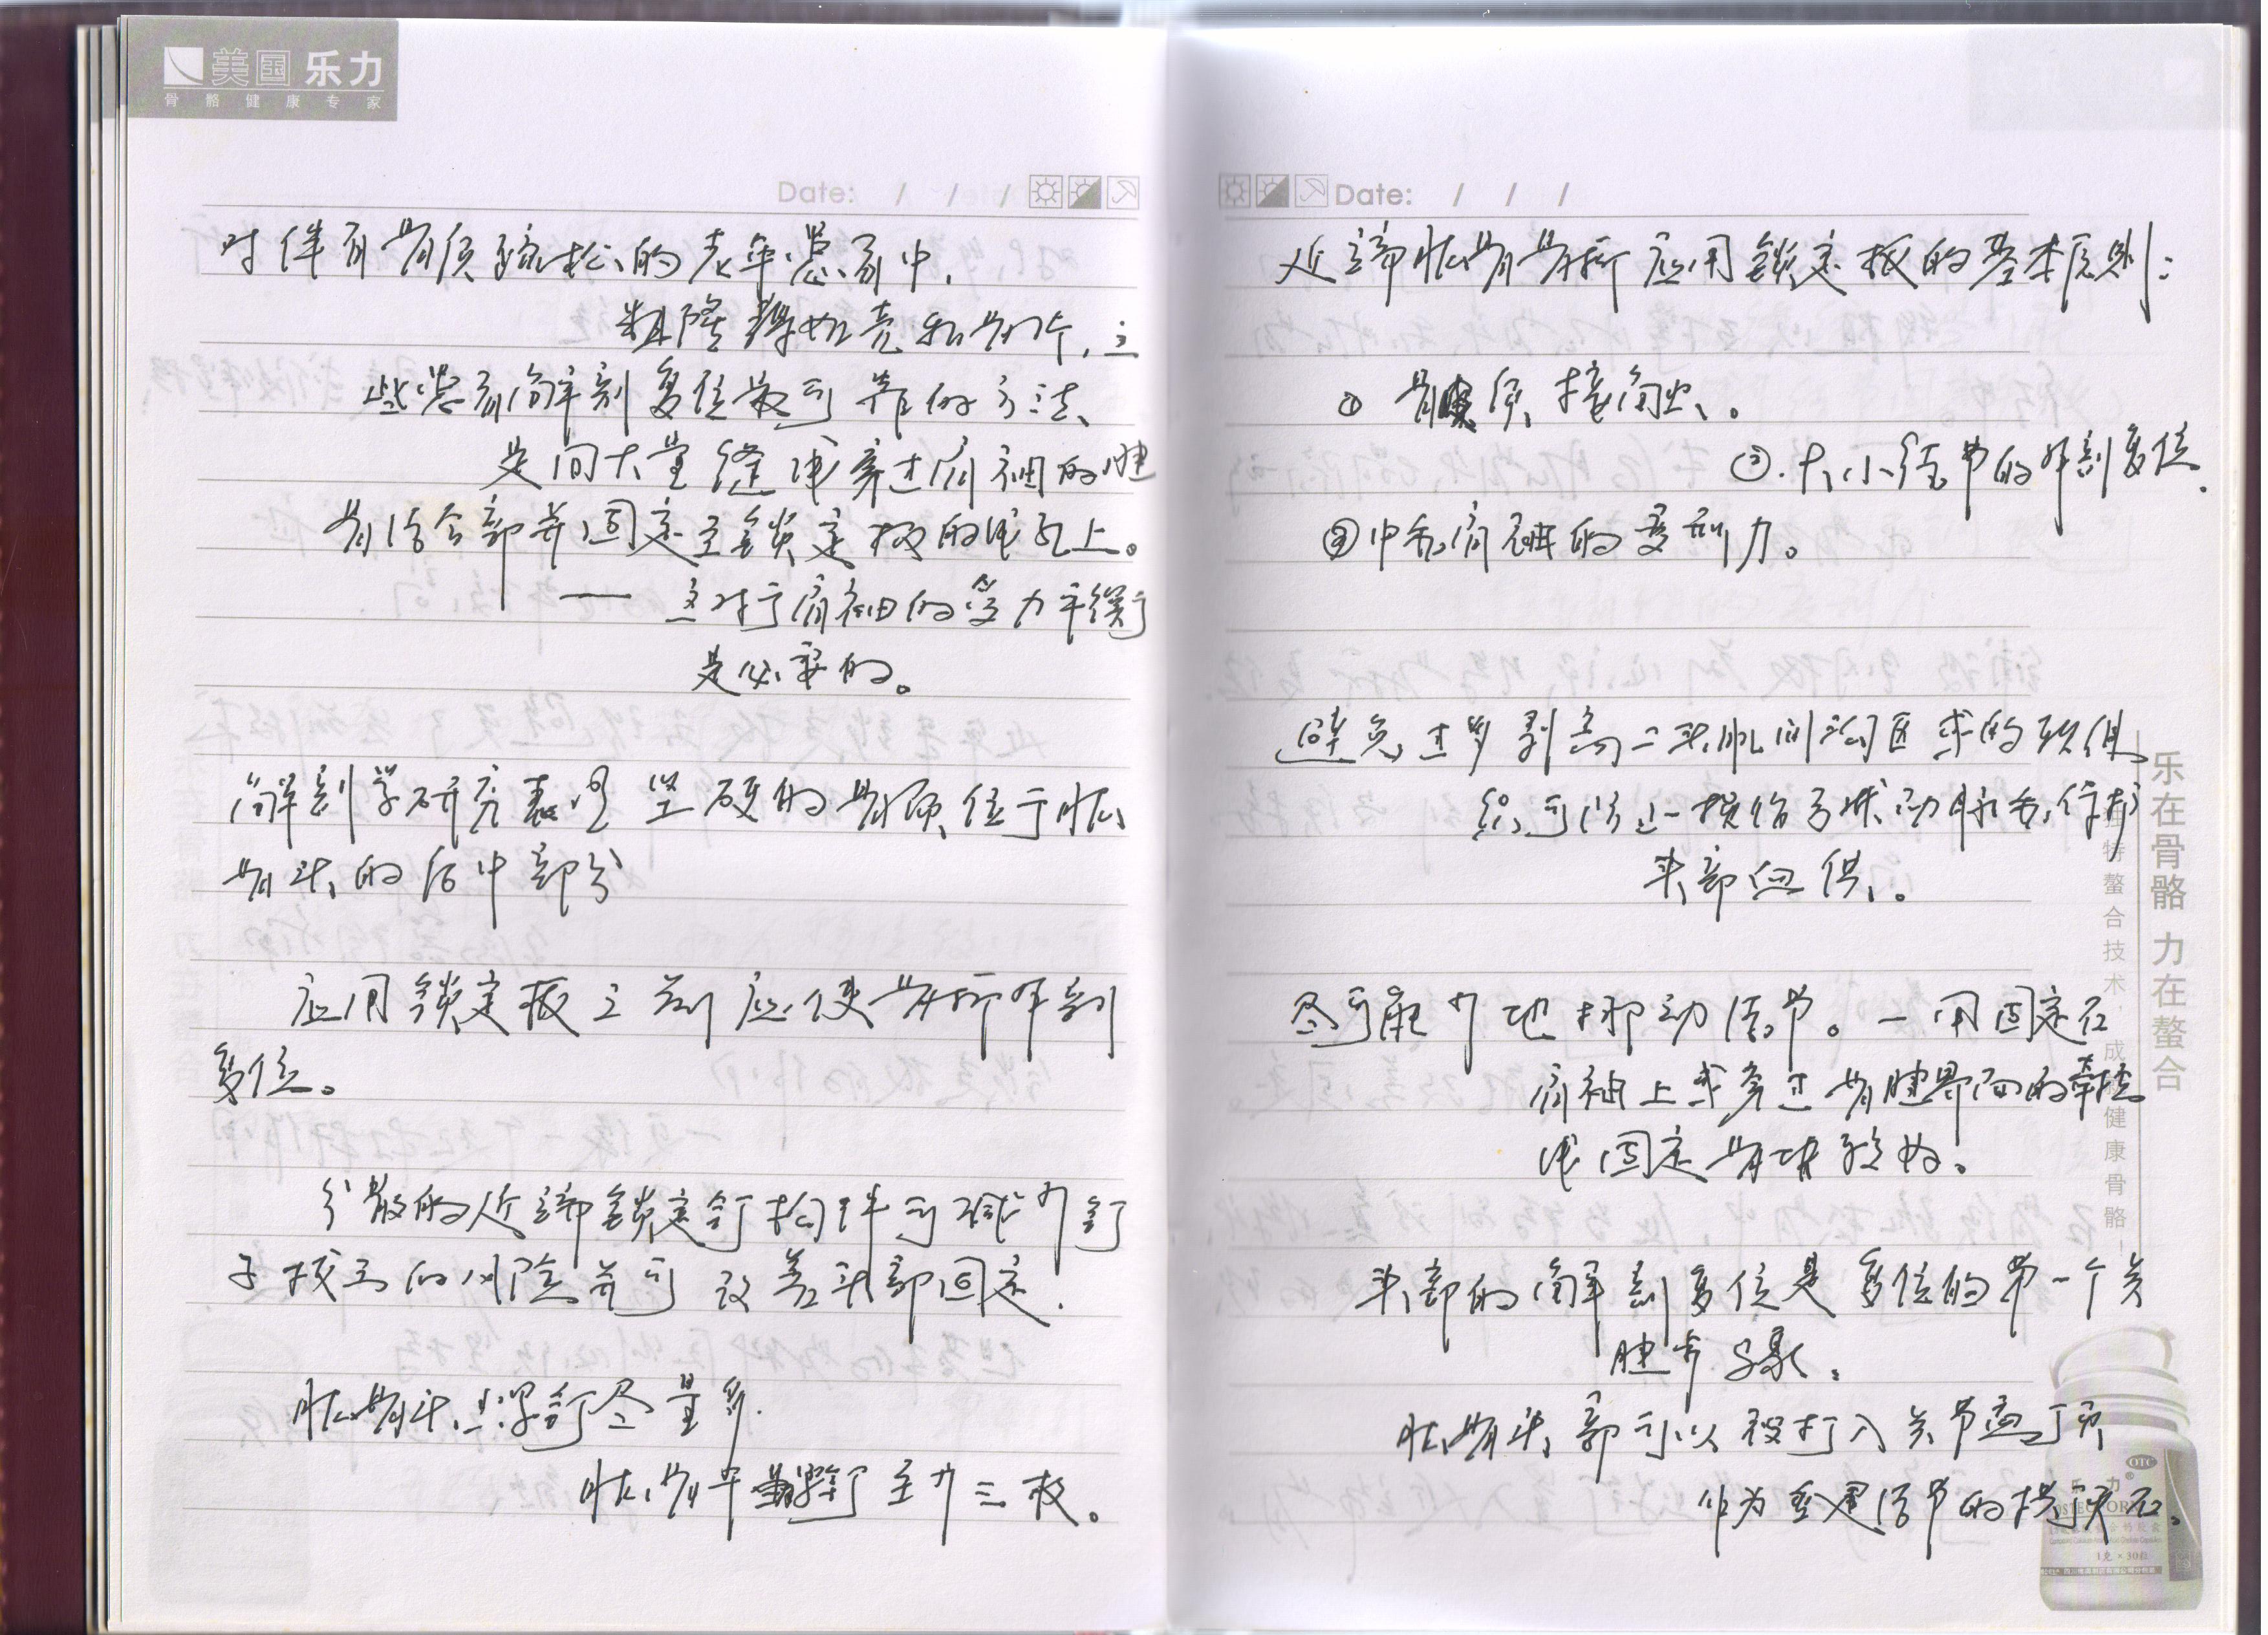 美国 乐力
骨骼健康专家
Date: / / /
对伴有骨质疏松的老年患者中,
粗隆薄如壳和骨
些患者解剖复位最可靠的方法、
是间大量缝线穿过肩袖的腱
骨结合部并固定至锁定板的线孔上。
—— 这对于肩袖的受力平衡
是必要的。
解剖学研究表明 坚硬的骨质位于肱
骨头的后中部分
应用锁定板之前应使骨折解剖
复位。
分散的近端锁定钉构件可减少钉
子拔出的风险并可改善头部固定.
肱骨头上螺钉尽量多.
肱骨干螺钉至少三枚。
Date: / / /
近端肱骨骨折应用锁定板的基本原则:
① 骨质接触。
②. 大小结节的解剖复位.
③ 中和肩袖的变形力。
避免过多剥离二头肌间沟区域的软组
织可防止损伤弓状动脉和保护
头部血供。
尽可能少地挪动结节。一用固定在
肩袖上或穿过骨腱界面的牵拉
线固定骨块较好。
头部的解剖复位是复位的第一个关
键步骤。
肱骨头部可以被打入关节盂
作为重建结节的拱顶石。
乐在骨骼 力在螯合
特螯合技术,成 健康骨骼
OTC
乐力
1克×30粒